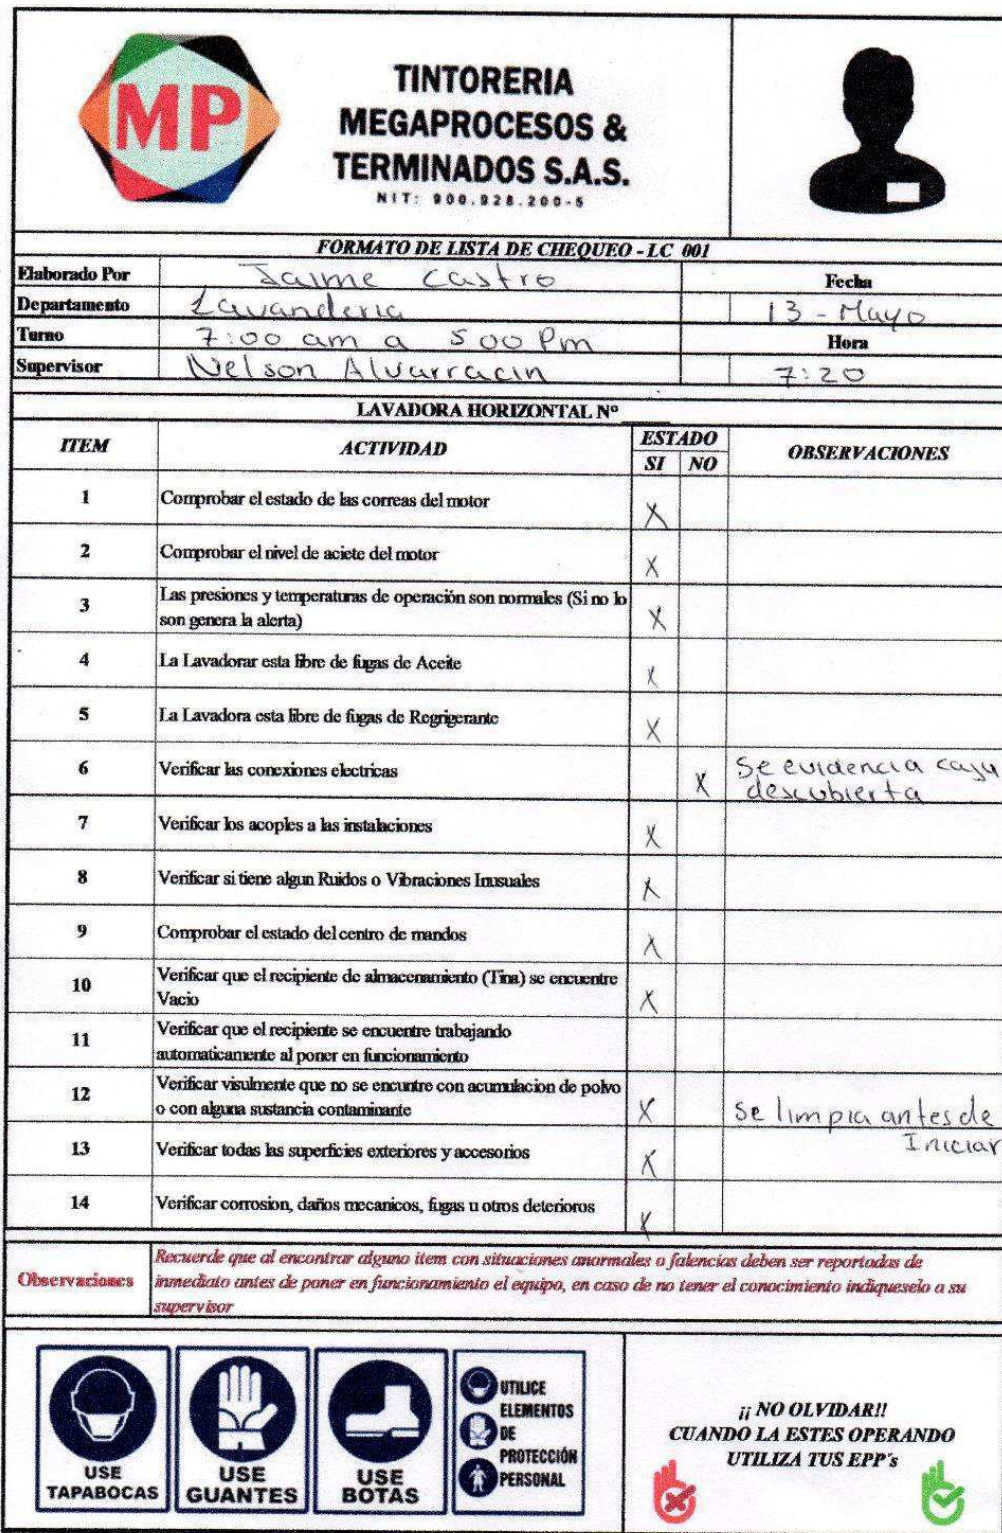 MP
TINTORERIA
MEGAPROCESOS &
TERMINADOS S.A.S.
NIT: 900.928.200-5
FORMATO DE LISTA DE CHEQUEO - LC 001
Elaborado Por Jaime Castro Fecha
Departamento Lavanderia 13 - Mayo
Turno 7:00 am a 5 00 Pm Hora
Supervisor Nelson Alvarracin 7:20
LAVADORA HORIZONTAL Nº
ITEM ACTIVIDAD ESTADO OBSERVACIONES
SI NO
1 Comprobar el estado de las correas del motor X
2 Comprobar el nivel de aciete del motor X
3 Las presiones y temperaturas de operación son normales (Si no lo
son genera la alerta) X
4 La Lavadorar esta libre de fugas de Aceite X
5 La Lavadora esta libre de fugas de Regrigerante X
6 Verificar las conexiones electricas X Se evidencia caja
descubierta
7 Verificar los acoples a las instalaciones X
8 Verificar si tiene algun Ruidos o Vibraciones Inusuales X
9 Comprobar el estado del centro de mandos X
10 Verificar que el recipiente de almacenamiento (Tina) se encuentre
Vacio X
11 Verificar que el recipiente se encuentre trabajando
automaticamente al poner en funcionamiento
12 Verificar visulmente que no se encuntre con acumulacion de polvo
o con alguna sustancia contaminante X Se limpia antes de
Iniciar
13 Verificar todas las superficies exteriores y accesorios X
14 Verificar corrosion, daños mecanicos, fugas u otros deterioros X
Observaciones Recuerde que al encontrar alguno item con situaciones anormales o falencias deben ser reportadas de
inmediato antes de poner en funcionamiento el equipo, en caso de no tener el conocimiento indiqueselo a su
supervisor
USE
TAPABOCAS
USE
GUANTES
USE
BOTAS
UTILICE
ELEMENTOS
DE
PROTECCIÓN
PERSONAL
¡¡ NO OLVIDAR!!
CUANDO LA ESTES OPERANDO
UTILIZA TUS EPP´s